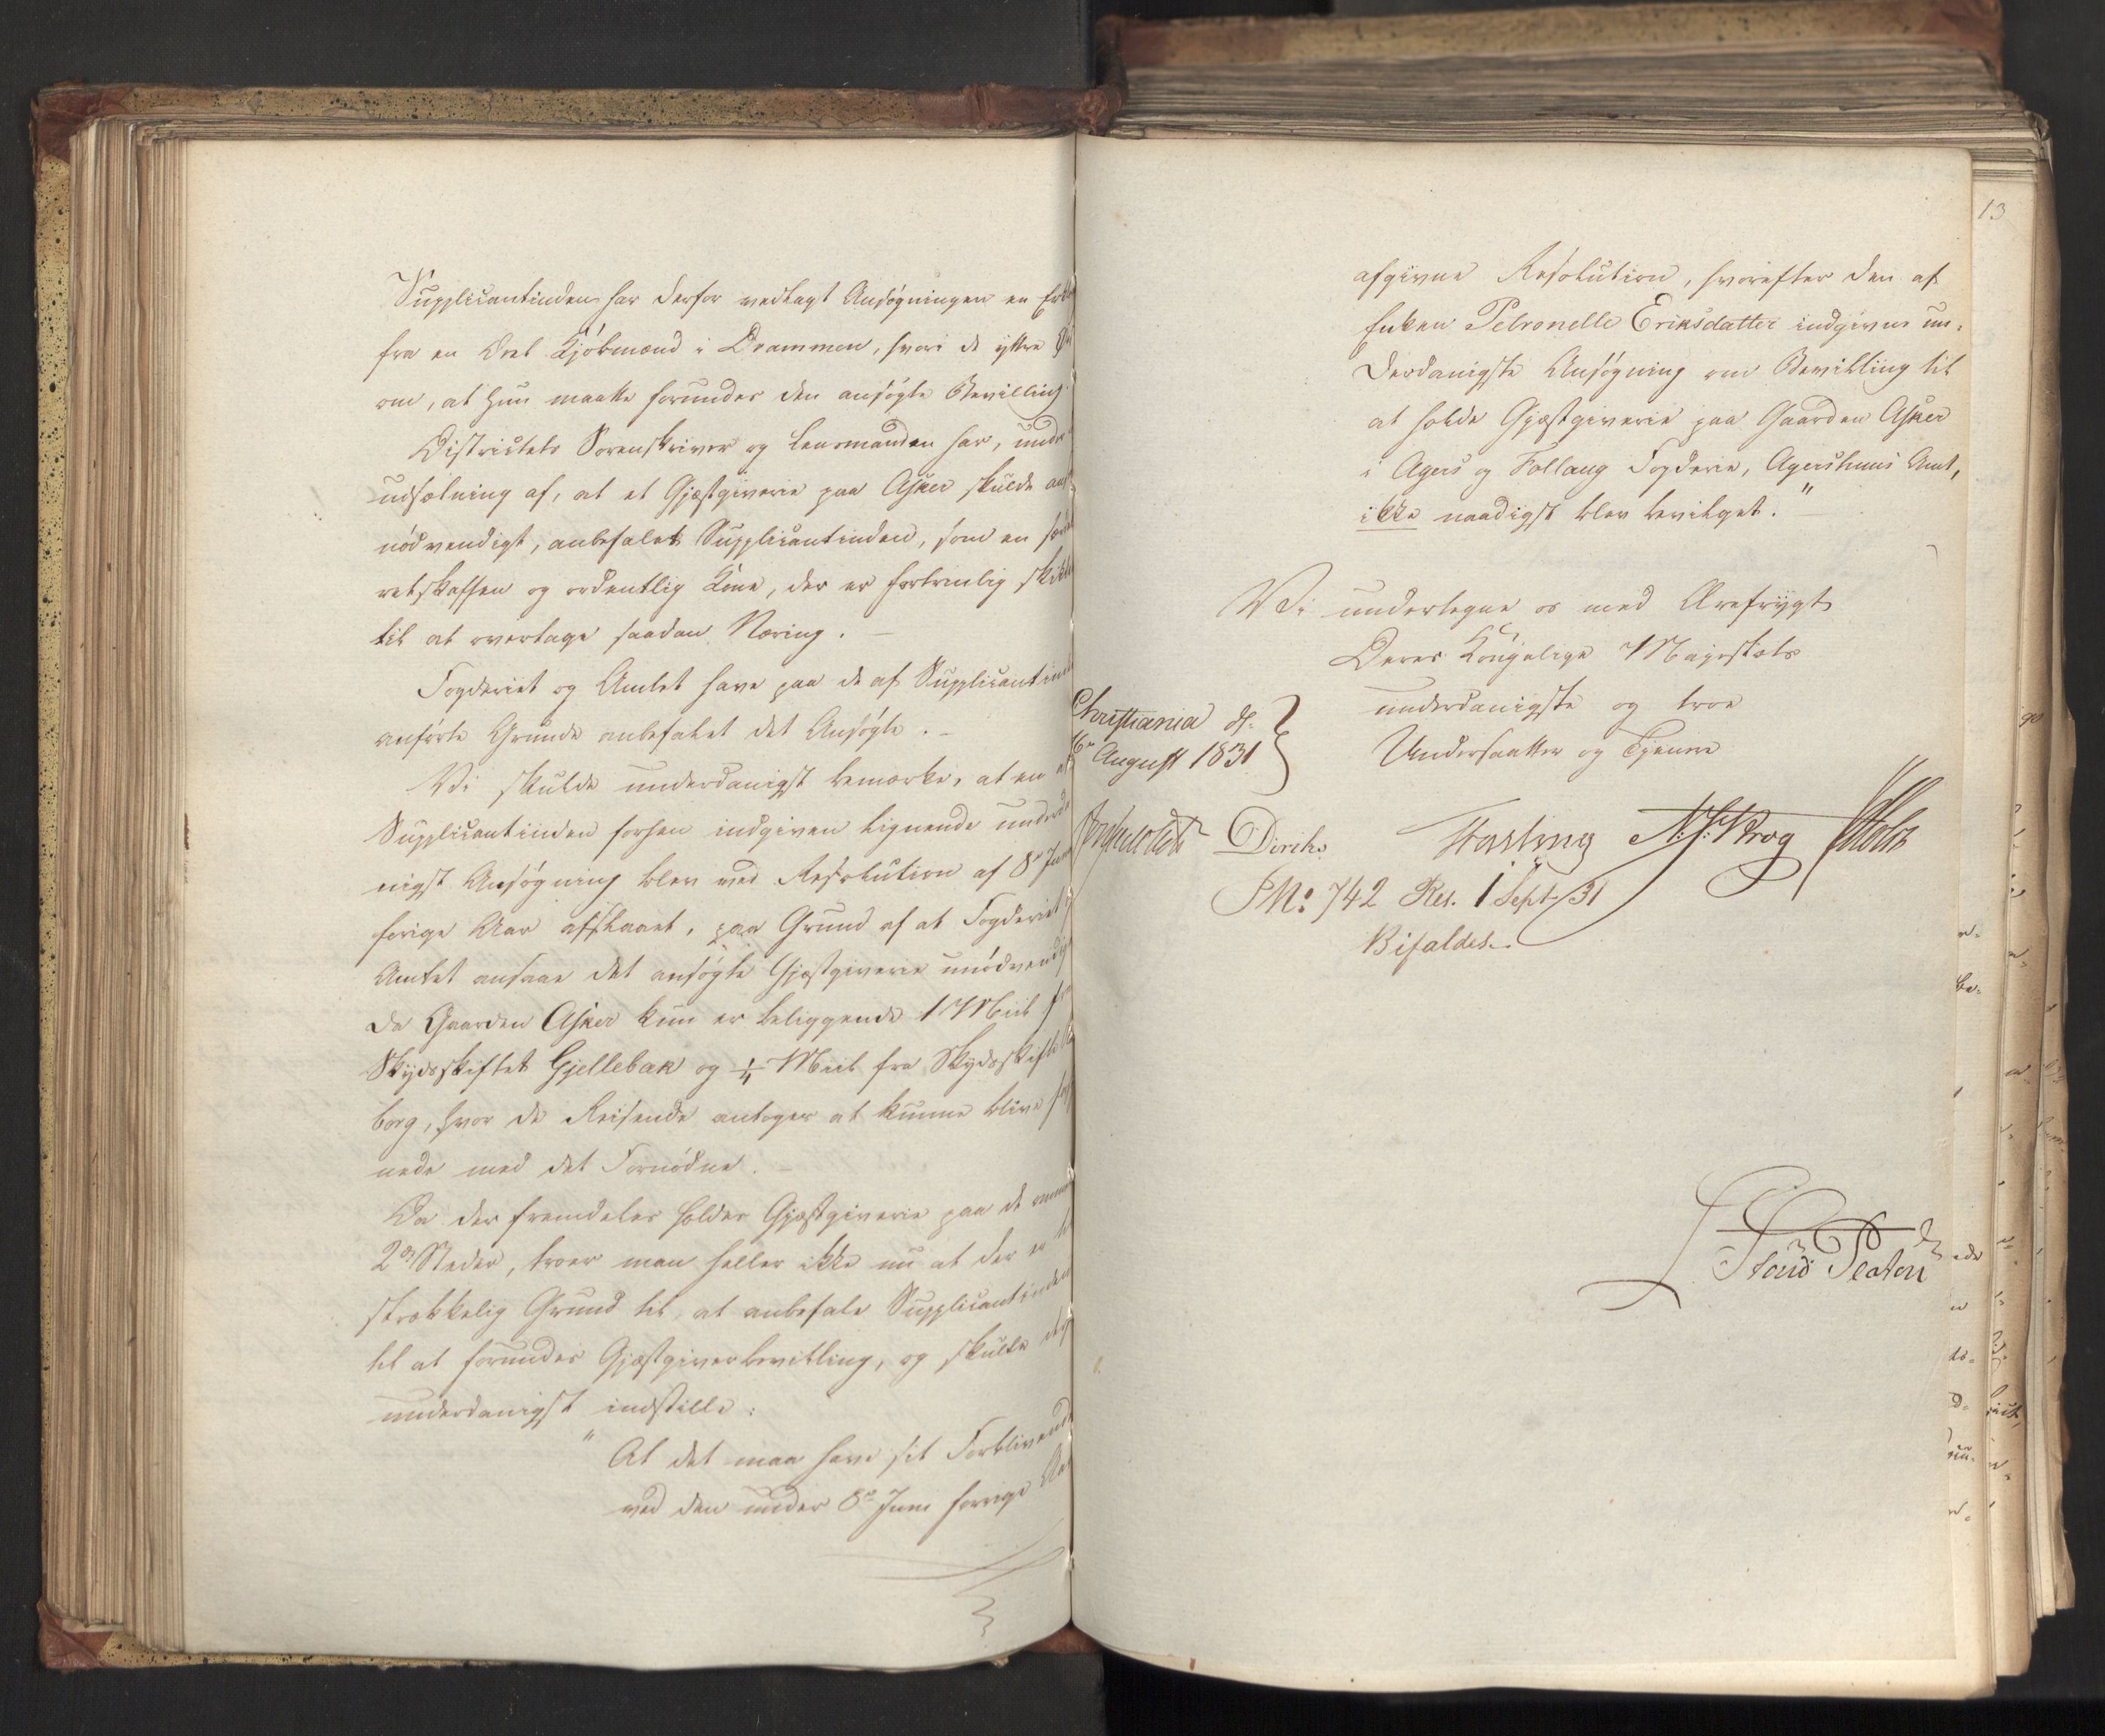 Supplicantinden har derfor vedlagt Ansøgningen en
fra en Deel Kjøbmænd i Drammen, hvori de yttre
om, at hun maatte forundes den ansøgte Bevilling.
Districtets Sorenskriver og Lensmanden har, under
udsætning af, at et Gjæstgiverie paa Asker skulde
nødvendigt, anbefalet Supplicantinden, som en
retskaffen og ordentlig Kone, der er fortrinlig
til at overtage saadan Næring. –
Fogderiet og Amtet have paa de af Supplicantinden
anførte Grunde anbefalet det Ansøgte. –
Vi skulde underdanigst bemærke, at en af
Supplicantinden forhen indgiven lignende underda
nigst Ansøgning blev ved Resolution af 8de Juni
forige Aar afslaaet, paa Grund af at Fogderiet og
Amtet ansaae det ansøgte Gjæstgiverie unødvendigt
da Gaarden Asker kun er beliggende 1 Miil fra
Skydsskiftet Gjellebæk og 1/4 Miil fra Skydsskiftet
borg, hvor de Reisende antoges at kunne blive
nede med det Fornødne. –
Da der fremdeles holdes Gjæstgiverie paa de
2de Steder, troer man heller ikke nu at der er
strækkelig Grund til, at anbefale Supplicantinden
til at forundes Gjæstgiverbevilling, og skulde
underdanigst indstille:
" At det maa have sit Forblivende
ved den under 8de Juni forrige Aar
13
afgivne Resolution, hvorefter den af
Enken Petronelle Eriksdatter indgivne un-
derdanigste Ansøgning om Bevilling til
at holde Gjæstgiverie paa Gaarden Asker
i Agers og Follaug Fogderie, Agershuus Amt,
ikke naadigst blev bevilget."
Vi undertegne os med Ærefrygt
Deres Kongelige Majestæts
underdanigste og troe
Undersaatter og Tjenere
Christiania d.
August 1831
Diriks Fasting Krog Holst
PM: 742 Res. 1 Sept. 31
Bifaldes.